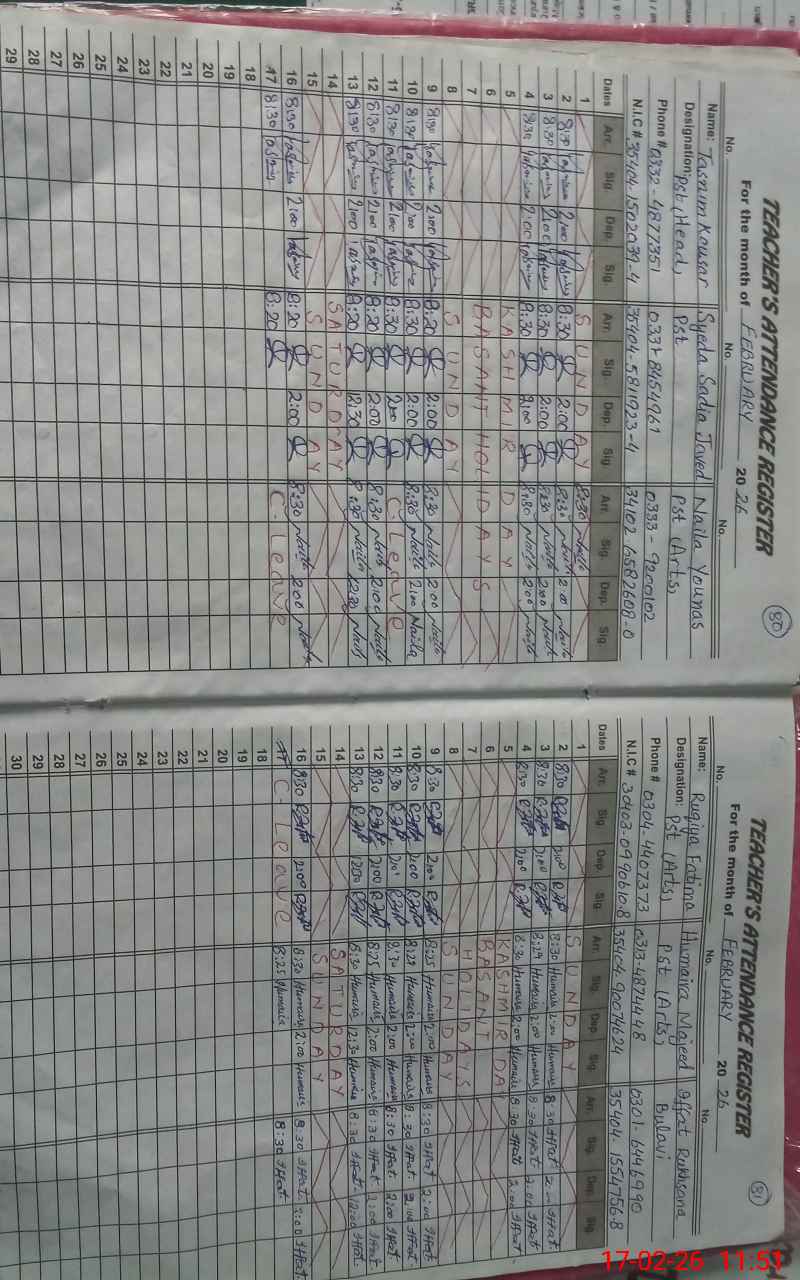 TEACHER'S ATTENDANCE REGISTER
80
For the month of FEBRUARY 2026
No. No. No.
Name: Tasnim Kousar Syeda Sadia Javed Naila Younas
Designation: Pst, Head, Pst Pst (Arts)
Phone # 0332-4877351 0331-8454961 0333-9200102
N.I.C # 35404-1502039-4 35404-5811923-4 34102-6582608-0
Dates Arr. Sig. Dep. Sig. Arr. Sig. Dep. Sig. Arr. Sig. Dep. Sig.
1 SUNDAY 8:30 Naila
2 8:30 Yasmin 2:00 Yasmin 8:30 2:00 8:30 Naila 2:00 Naila
3 8:30 Yasmin 2:00 Yasmin 8:30 2:00 8:30 Naila 2:00 Naila
4 8:30 Yasmin 2:00 Yasmin 8:30 2:00 8:30 Naila 2:00 Naila
5 KASHMIR DAY
6 BASANT HOLIDAYS
7
8 SUNDAY
9 8:30 Yasmin 2:00 Yasmin 8:20 2:00 8:30 Naila 2:00 Naila
10 8:30 Yasmin 2:00 Yasmin 8:30 2:00 8:30 Naila 2:00 Naila
11 8:30 Yasmin 2:00 Yasmin 8:30 2:00 C Leave
12 8:30 Yasmin 2:00 Yasmin 8:20 2:00 8:30 Naila 2:00 Naila
13 8:30 Yasmin 2:00 Yasmin 8:20 12:30 8:30 Naila 12:30 Naila
14 SATURDAY
15 SUNDAY
16 8:30 Yasmin 2:00 Yasmin 8:20 2:00 8:30 Naila 2:00 Naila
17 8:30 Yasmin 8:20 C-Leave
18
19
20
21
22
23
24
25
26
27
28
29
TEACHER'S ATTENDANCE REGISTER
81
For the month of FEBRUARY 2026
No. No. No.
Name: Ruqiya Fatima Humaira Majeed Iffat Rukhsana
Designation: Pst (Arts) Pst (Arts) Bulavi
Phone # 0304-4407373 0313-4874448 0301-6446990
N.I.C # 30403-0990610-8 35404-90074624 35404-1554756-8
Dates Arr. Sig. Dep. Sig. Arr. Sig. Dep. Sig. Arr. Sig. Dep. Sig.
1 SUNDAY
2 8:30 2:00 8:30 Humaira 2:00 Humaira 8:30 Iffat 2:00 Iffat
3 8:30 2:00 8:29 Humaira 2:00 Humaira 8:30 Iffat 2:00 Iffat
4 8:30 2:00 8:30 Humaira 2:00 Humaira 8:30 Iffat 2:00 Iffat
5 KASHMIR DAY
6 BASANT
7 HOLIDAYS
8 SUNDAY
9 8:30 2:00 8:25 Humaira 2:00 Humaira 8:30 Iffat 2:00 Iffat
10 8:30 2:00 8:29 Humaira 2:00 Humaira 8:30 Iffat 2:00 Iffat
11 8:30 2:00 8:30 Humaira 2:00 Humaira 8:30 Iffat 2:00 Iffat
12 8:30 2:00 8:25 Humaira 2:00 Humaira 8:30 Iffat 2:00 Iffat
13 8:30 12:30 8:30 Humaira 12:30 Humaira 8:30 Iffat 12:00 Iffat
14 SATURDAY
15 SUNDAY
16 8:30 2:00 8:30 Humaira 2:00 Humaira 8:30 Iffat 2:00 Iffat
17 C-Leave 8:25 Humaira 8:30 Iffat
18
19
20
21
22
23
24
25
26
27
28
29
30
17-02-26 11:51